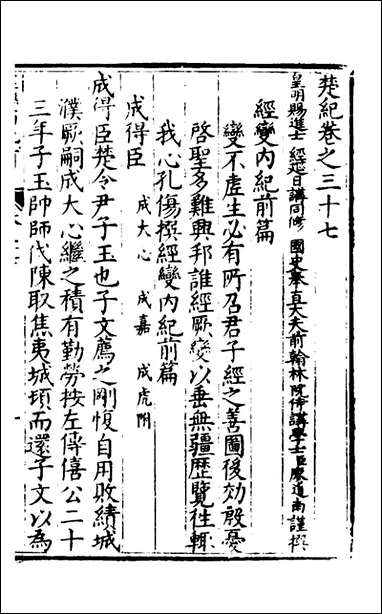 楚紀卷之三十七
皇明賜進士 經筵日講同修 國史奉直大夫前翰林院侍講學士臣廖道南謹撰
經變內紀前篇
變不虛生必有所召君子經之善圖後効殷憂
啓聖多難興邦誰經厥變以垂無疆歷覽徃輒
我心孔傷撰經變內紀前篇
成得臣 成大心 成嘉 成虎附
成得臣楚令尹子玉也子文薦之剛愎自用敗績城
濮厥嗣成大心繼之積有勤勞按左傳僖公二十
三年子玉帥師伐陳取焦夷城頓而還子文以為